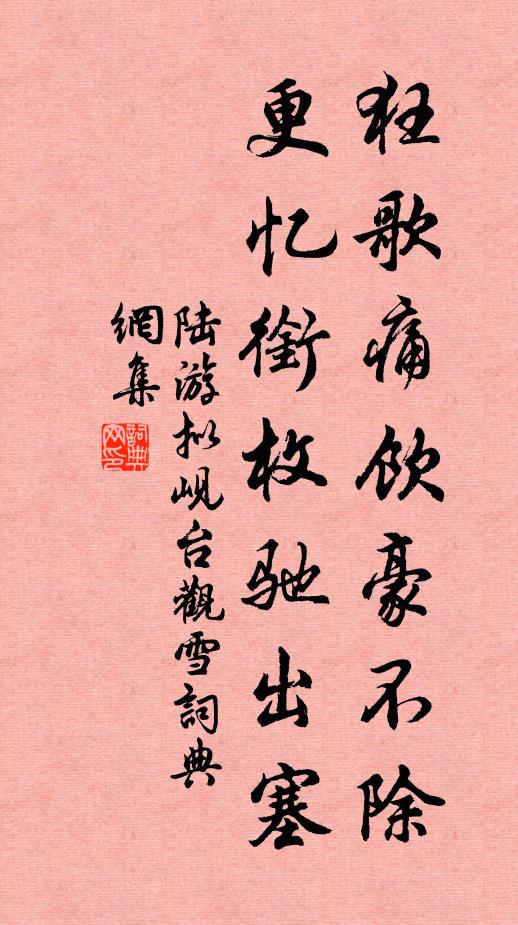 狂歌痛饮豪不除
更忆銜枚驰出塞
陆游拟岘台觀雪詞典
網集
詞典
网印